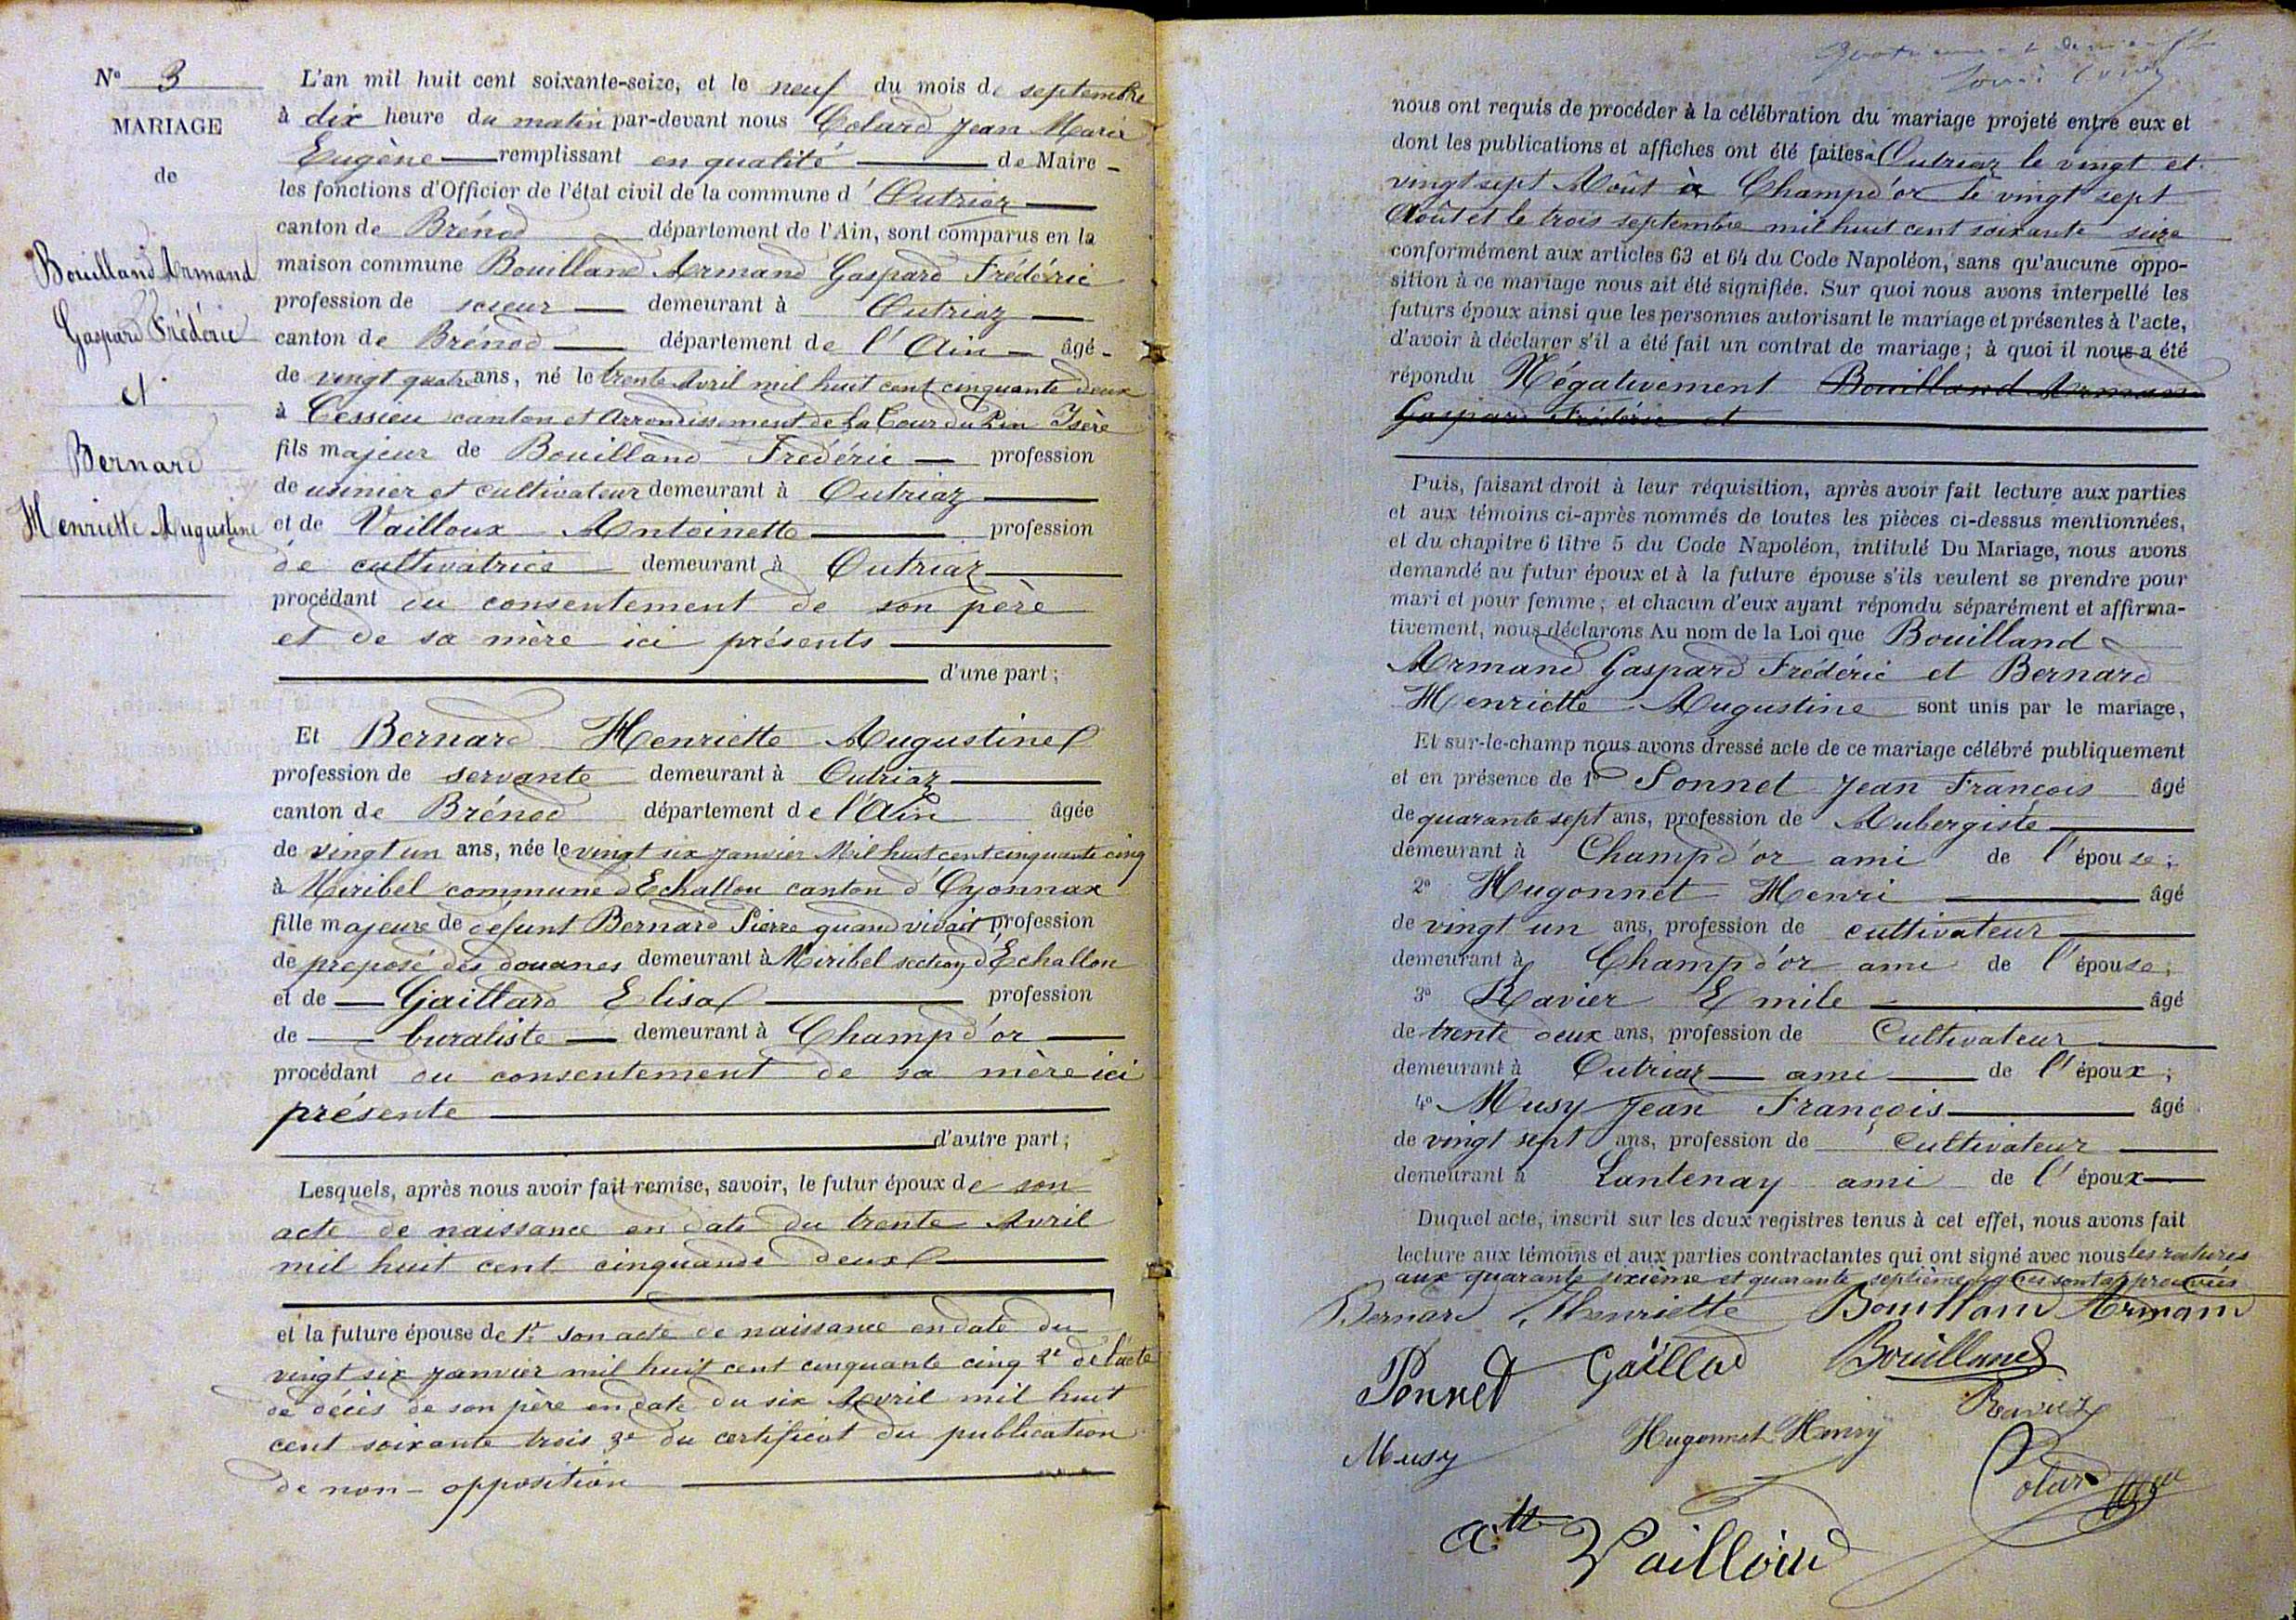 N° 3
MARIAGE
de
Bouilland Armand
Gaspard Frédéric
et
Bernard
Henriette Augustine
L'an mil huit cent soixante-seize, et le neuf du mois de septembre
à dix heure du matin par-devant nous Colard Jean Marie
Eugène remplissant en qualité de Maire
les fonctions d'Officier de l'état civil de la commune d'Outriaz
canton de Brénod département de l'Ain, sont comparus en la
maison commune Bouilland Armand Gaspard Frédéric
profession de scieur demeurant à Outriaz
canton de Brénod département de l'Ain âgé
de vingt quatre ans, né le trente Avril mil huit cent cinquante deux
à Cessieu canton et Arrondissement de La Tour du Pin Isère
fils majeur de Bouilland Frédéric profession
de usinier et cultivateur demeurant à Outriaz
et de Vailloux Antoinette profession
de cultivatrice demeurant à Outriaz
procédant du consentement de son père
et de sa mère ici présents
d'une part;
Et Bernard Henriette Augustine
profession de servante demeurant à Outriaz
canton de Brénod département de l'Ain âgée
de vingt un ans, née le vingt six janvier Mil huit cent cinquante cinq
à Miribel commune d'Echallon canton d'Oyonnax
fille majeure de defunt Bernard Pierre quand vivait profession
de preposé des douanes demeurant à Miribel section d'Echallon
et de Gaillard Elisa profession
de buraliste demeurant à Champd'or
procédant du consentement de sa mère ici
présente
d'autre part;
Lesquels, après nous avoir fait remise, savoir, le futur époux de son
acte de naissance en date du trente Avril
mil huit cent cinquande deux
et la future épouse de 1° son acte de naissance en date du
vingt six janvier mil huit cent cinquante cinq 2° de l'acte
de décès de son père en date du six Avril mil huit
cent soixante trois 3° du certificat du publication
de non-opposition
nous ont requis de procéder à la célébration du mariage projeté entre eux et
dont les publications et affiches ont été faites à Outriaz le vingt et
vingt sept Août à Champd'or le vingt sept
Août et le trois septembre mil huit cent soixante seize
conformément aux articles 63 et 64 du Code Napoléon, sans qu'aucune oppo-
sition à ce mariage nous ait été signifiée. Sur quoi nous avons interpellé les
futurs époux ainsi que les personnes autorisant le mariage et présentes à l'acte,
d'avoir à déclarer s'il a été fait un contrat de mariage; à quoi il nous a été
répondu Négativement Bouilland Armand
Gaspard Frédéric et
Puis, faisant droit à leur réquisition, après avoir fait lecture aux parties
et aux témoins ci-après nommés de toutes les pièces ci-dessus mentionnées,
et du chapitre 6 titre 5 du Code Napoléon, intitulé Du Mariage, nous avons
demandé au futur époux et à la future épouse s'ils veulent se prendre pour
mari et pour femme; et chacun d'eux ayant répondu séparément et affirma-
tivement, nous déclarons Au nom de la Loi que Bouilland
Armand Gaspard Frédéric et Bernard
Henriette Augustine sont unis par le mariage,
Et sur-le-champ nous avons dressé acte de ce mariage célébré publiquement
et en présence de 1° Ponnet Jean François âgé
de quarante sept ans, profession de Aubergiste
demeurant à Champd'or ami de l'épouse;
2° Hugonnet Henri âgé
de vingt un ans, profession de cultivateur
demeurant à Champd'or ami de l'épouse;
3° Ravier Emile âgé
de trente deux ans, profession de Cultivateur
demeurant à Outriaz ami de l'époux;
4° Musy Jean François âgé
de vingt sept ans, profession de Cultivateur
demeurant à Lantenay ami de l'époux
Duquel acte, inscrit sur les deux registres tenus à cet effet, nous avons fait
lecture aux témoins et aux parties contractantes qui ont signé avec nous les ratures
aux quarante sixième et quarante septième lignes sont approuvées
Bernard Henriette Bouilland Armand
Ponnet Gaillad Bouilland
Ravier
Musy Hugonnet Henry
Colard
Atte Vailloud